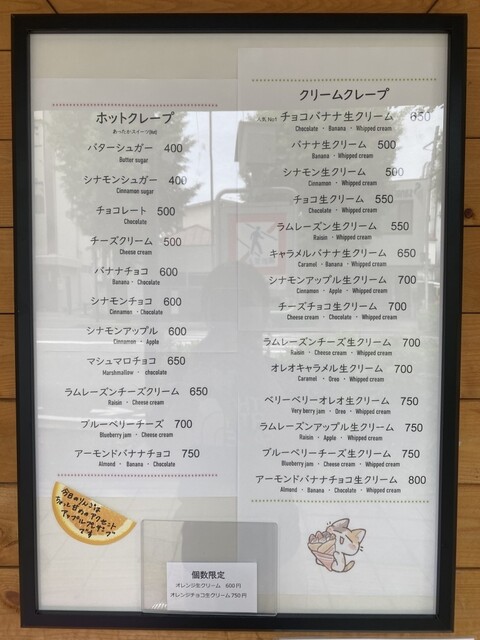 ホットクレープ
あったかスイーツ(hot)
バターシュガー 400
Butter sugar
シナモンシュガー 400
Cinnamon sugar
チョコレート 500
Chocolate
チーズクリーム 500
Cheese cream
バナナチョコ 600
Banana・Chocolate
シナモンチョコ 600
Cinnamon・Chocolate
シナモンアップル 600
Cinnamon・Apple
マシュマロチョコ 650
Marshmallow・chocolate
ラムレーズンチーズクリーム 650
Raisin・Cheese cream
ブルーベリーチーズ 700
Blueberry jam・Cheese cream
アーモンドバナナチョコ 750
Almond・Banana・Chocolate
クリームクレープ
人気 No1 チョコバナナ生クリーム 650
Chocolate・Banana・Whipped cream
バナナ生クリーム 500
Banana・Whipped cream
シナモン生クリーム 500
Cinnamon・Whipped cream
チョコ生クリーム 550
Chocolate・Whipped cream
ラムレーズン生クリーム 550
Raisin・Whipped cream
キャラメルバナナ生クリーム 650
Caramel・Banana・Whipped cream
シナモンアップル生クリーム 700
Cinnamon・Apple・Whipped cream
チーズチョコ生クリーム 700
Cheese cream・Chocolate・Whipped cream
ラムレーズンチーズ生クリーム 700
Raisin・Cheese cream・Whipped cream
オレオキャラメル生クリーム 700
Caramel・Oreo・Whipped cream
ベリーベリーオレオ生クリーム 750
Very berry jam・Oreo・Whipped cream
ラムレーズンアップル生クリーム 750
Raisin・Apple・Whipped cream
ブルーベリーチーズ生クリーム 750
Blueberry jam・Cheese cream・Whipped cream
アーモンドバナナチョコ生クリーム 800
Almond・Banana・Chocolate・Whipped cream
今日のりんごは
アップル
です
個数限定
オレンジ生クリーム 600円
オレンジチョコ生クリーム750円